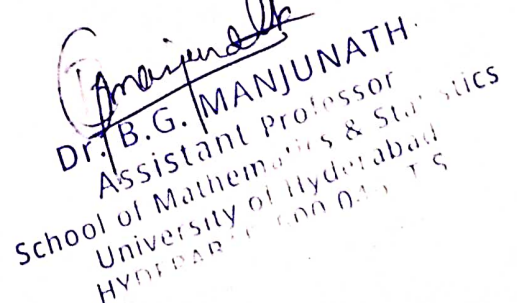 Dr. B.G. MANJUNATH
Assistant Professor
School of Mathematics & Statistics
University of Hyderabad